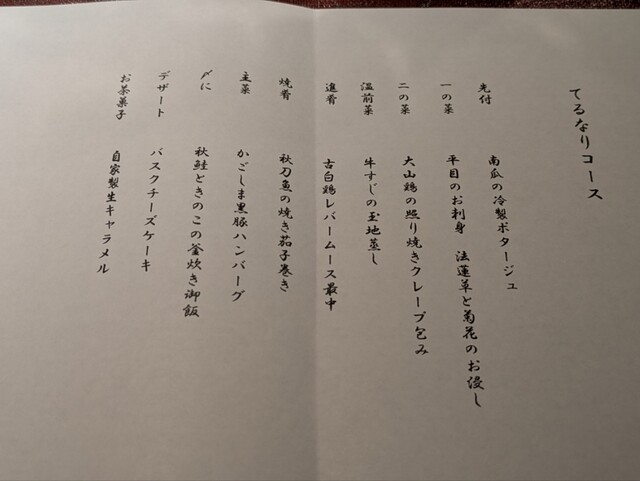 てるなりコース
先付　南瓜の冷製ポタージュ
一の菜　平目のお刺身　法蓮草と菊花のお浸し
二の菜　大山鶏の照り焼きクレープ包み
温前菜　牛すじの玉地蒸し
進肴　古白鶏レバームース最中
焼肴　秋刀魚の焼き茄子巻き
主菜　かごしま黒豚ハンバーグ
〆に　秋鮭ときのこの釜炊き御飯
デザート　バスクチーズケーキ
お茶菓子　自家製生キャラメル